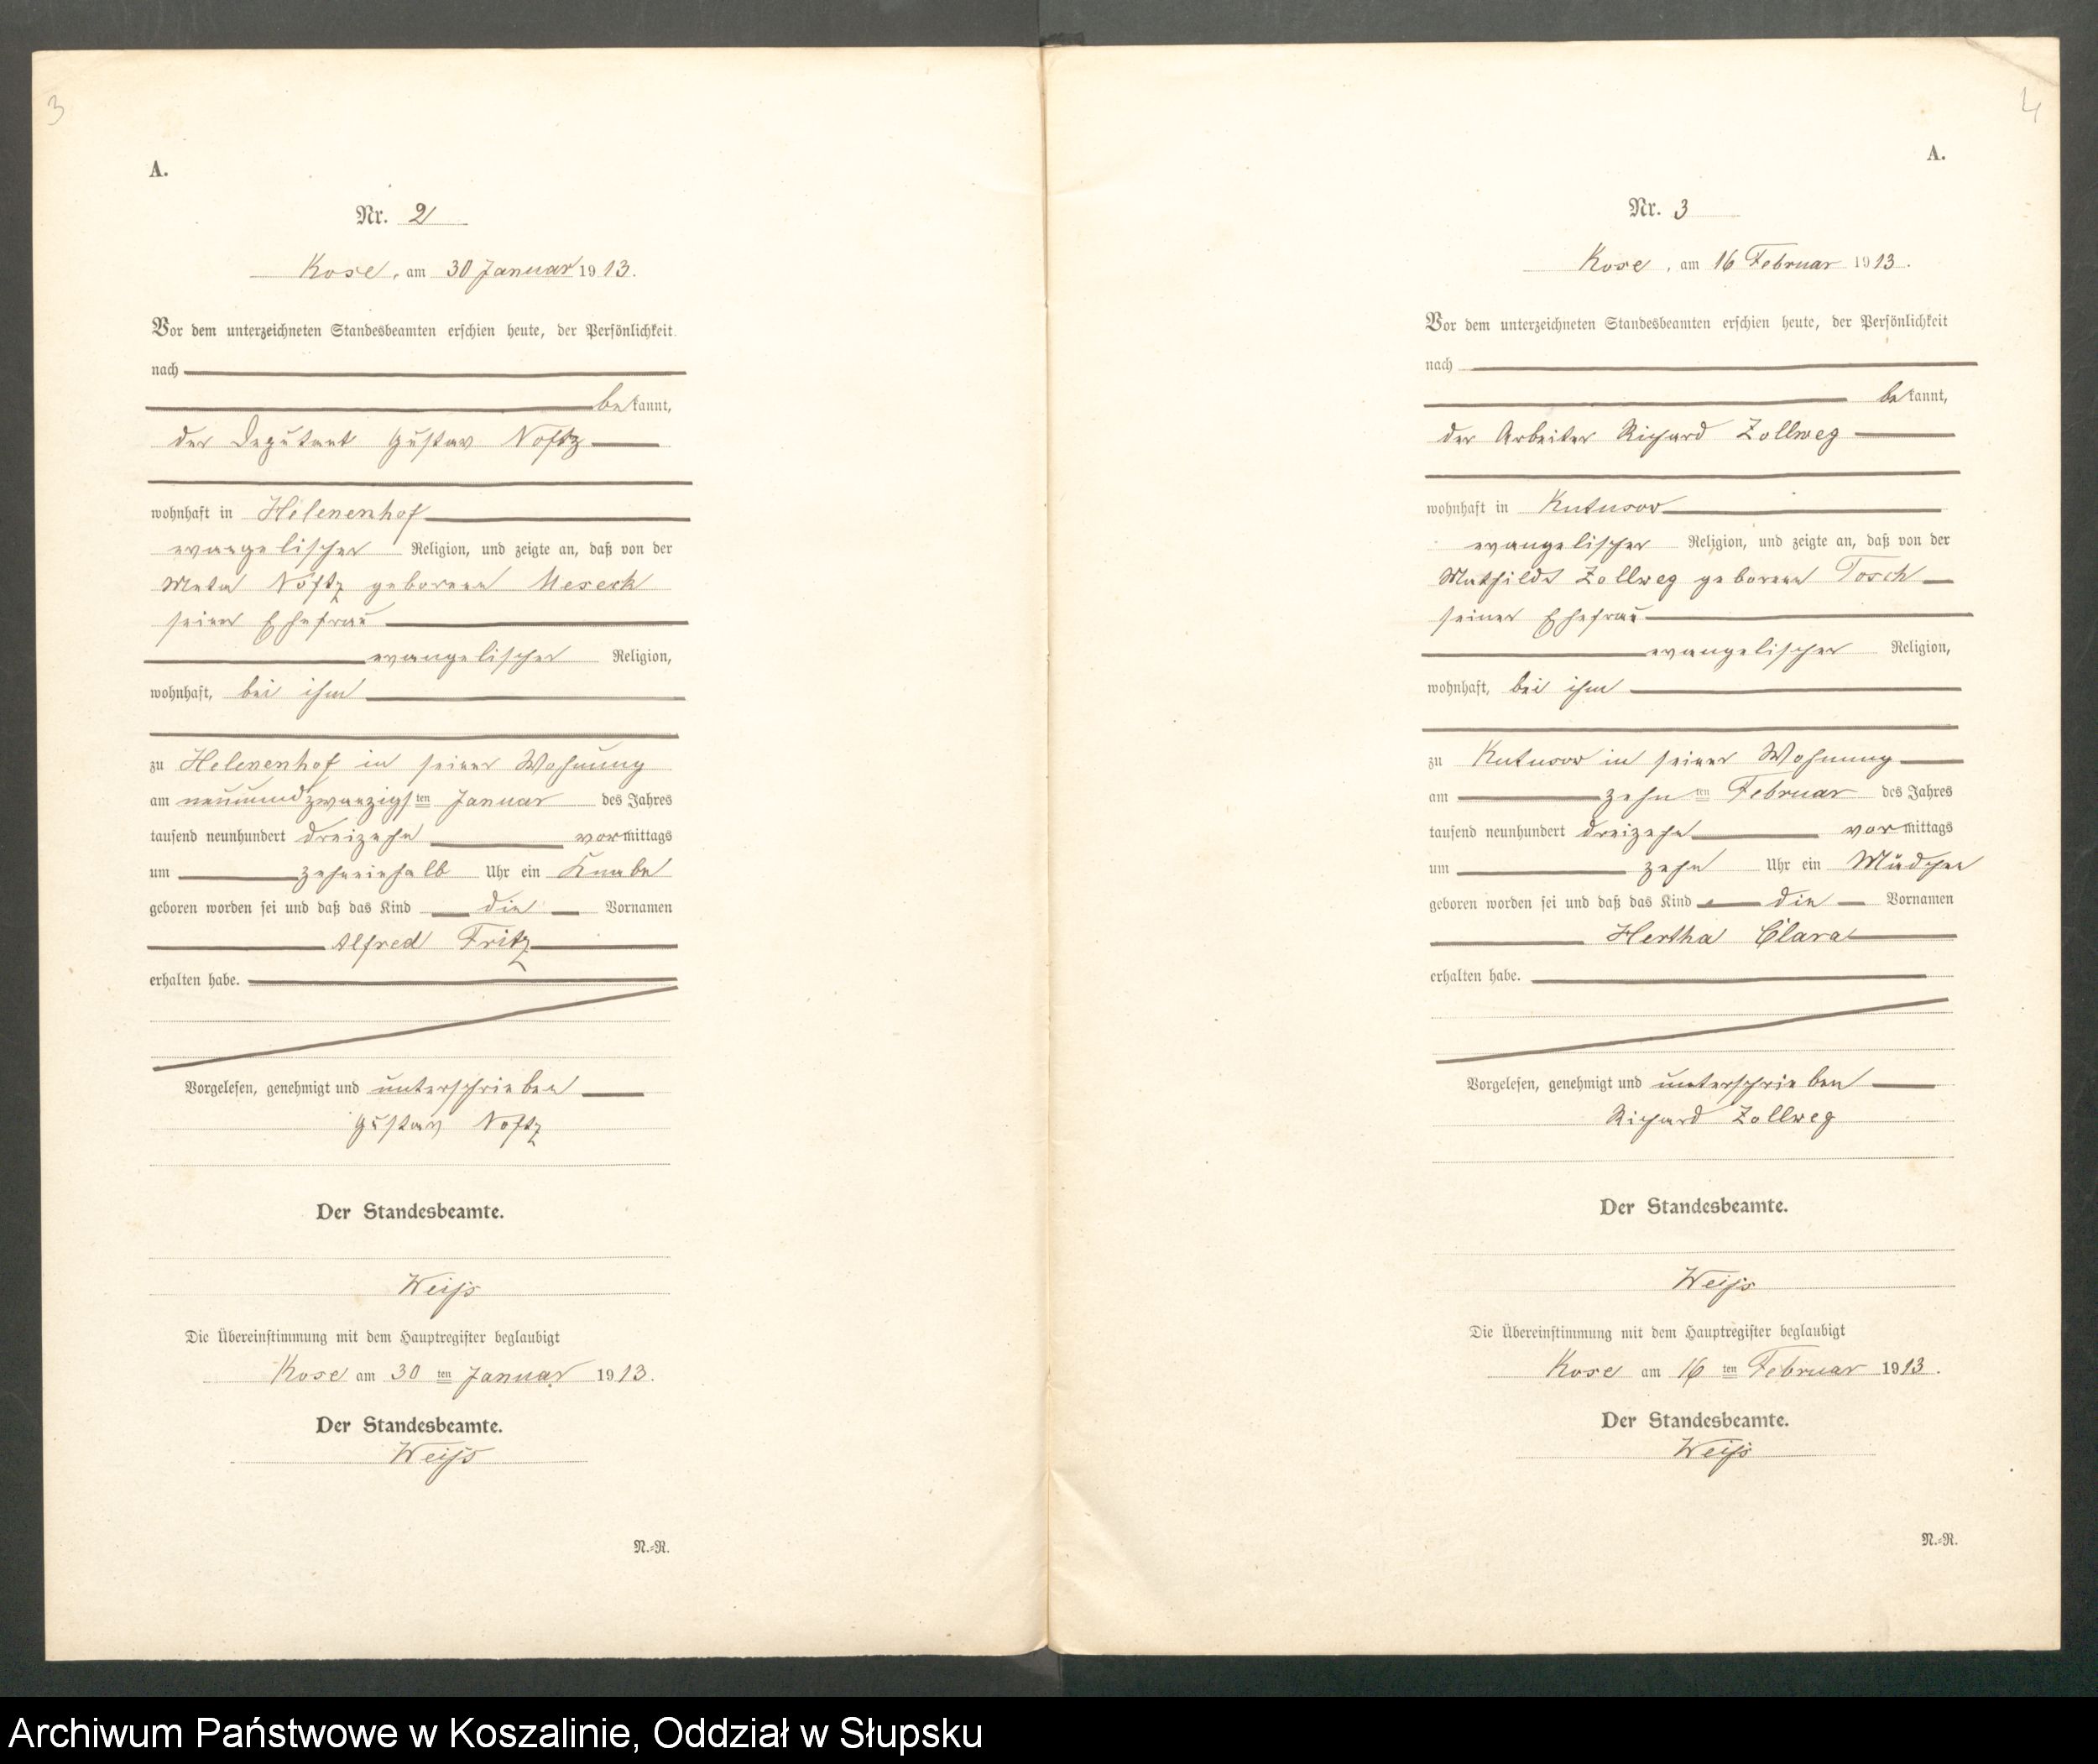 3
A.
Nr. 2
Kose, am 30 Januar 1913.
Vor dem unterzeichneten Standesbeamten erschien heute, der Persönlichkeit
nach
bekannt,
der Deputant Gustav Noftz
wohnhaft in Helenenhof
evangelischer Religion, und zeigte an, daß von der
Meta Noftz geborenen Meseck
seiner Ehefrau
evangelischer Religion,
wohnhaft, bei ihm
zu Helenenhof in seiner Wohnung
am neunundzwanzigsten Januar des Jahres
tausend neunhundert dreizehn vormittags
um zehneinhalb Uhr ein Knabe
geboren worden sei und daß das Kind die Vornamen
Alfred Fritz
erhalten habe.
Vorgelesen, genehmigt und unterschrieben
Gustav Noftz
Der Standesbeamte.
Weiß
Die Übereinstimmung mit dem Hauptregister beglaubigt
Kose am 30 ten Januar 1913.
Der Standesbeamte.
Weiß
N.-R.
4
A.
Nr. 3
Kose, am 16 Februar 1913.
Vor dem unterzeichneten Standesbeamten erschien heute, der Persönlichkeit
nach
bekannt,
der Arbeiter Richard Zollweg
wohnhaft in Kutusow
evangelischer Religion, und zeigte an, daß von der
Mathilde Zollweg geborenen Tosch
seiner Ehefrau
evangelischer Religion,
wohnhaft, bei ihm
zu Kutusow in seiner Wohnung
am zehnten Februar des Jahres
tausend neunhundert dreizehn vormittags
um zehn Uhr ein Mädchen
geboren worden sei und daß das Kind die Vornamen
Hertha Clara
erhalten habe.
Vorgelesen, genehmigt und unterschrieben
Richard Zollweg
Der Standesbeamte.
Weiß
Die Übereinstimmung mit dem Hauptregister beglaubigt
Kose am 16 ten Februar 1913.
Der Standesbeamte.
Weiß
N.-R.
Archiwum Państwowe w Koszalinie, Oddział w Słupsku